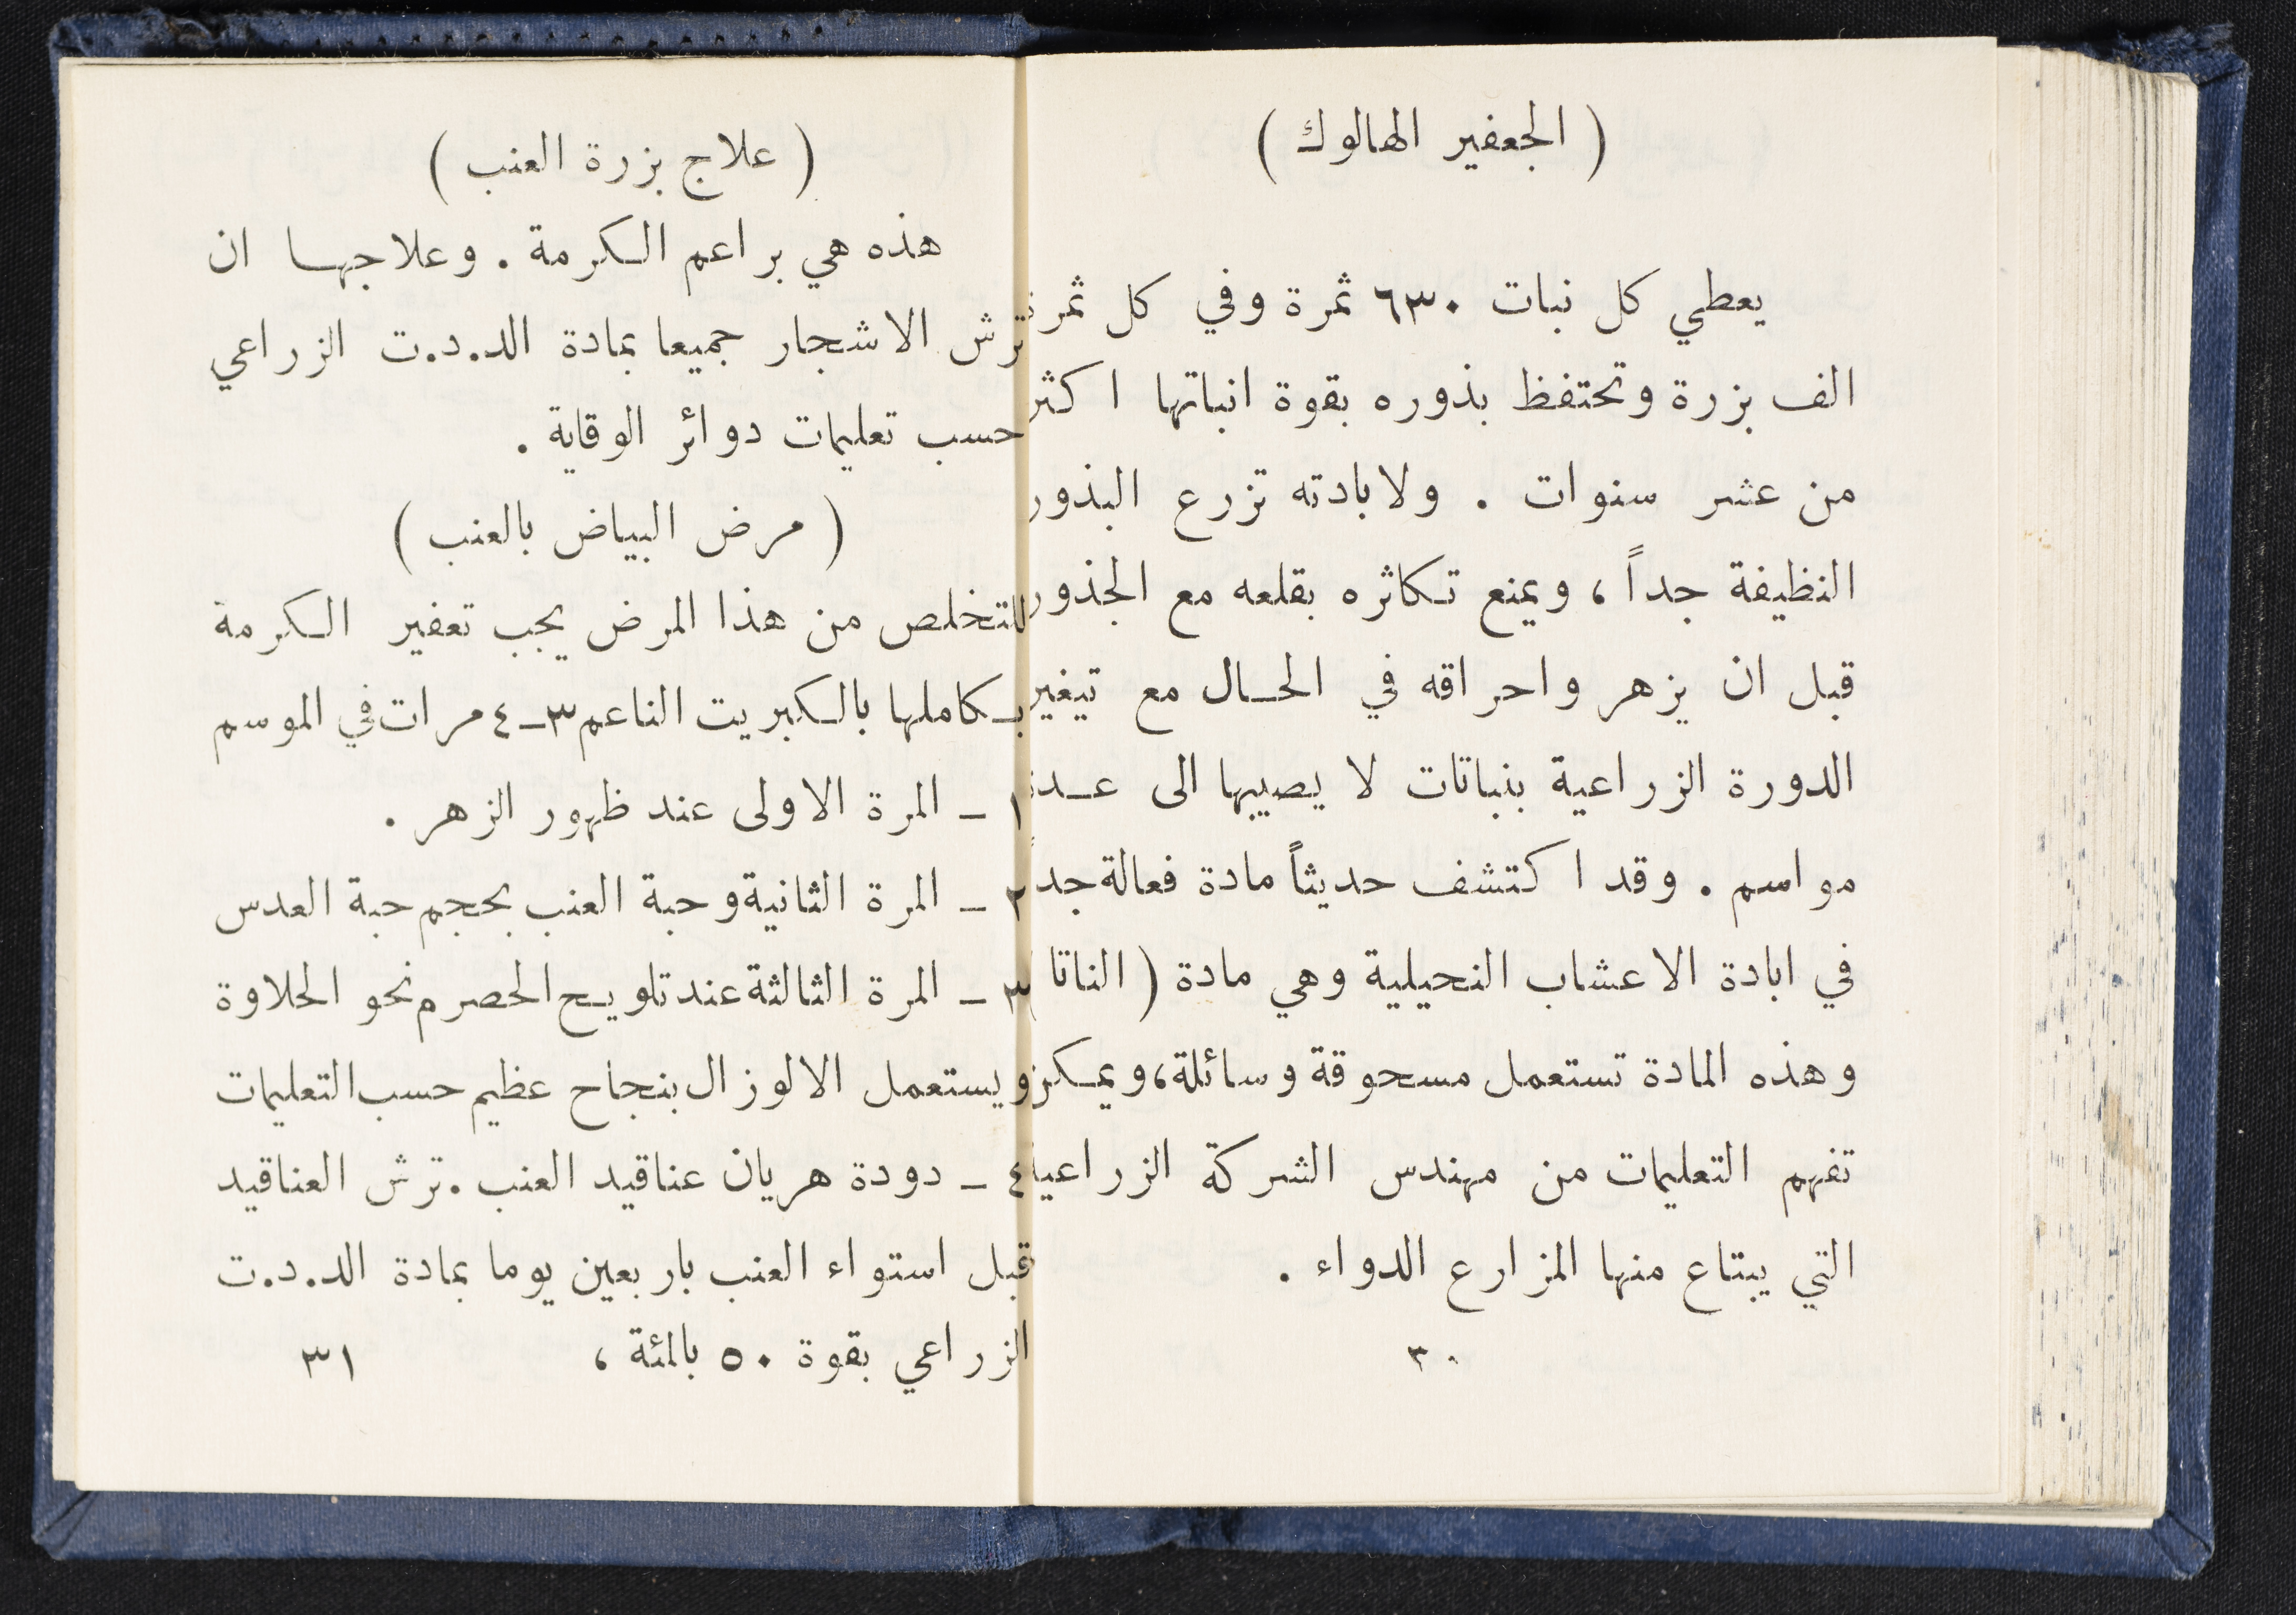 ( الجعفير الهالوك )
يعطي كل نبات ٦٣٠ ثمرة وفي كل ثمرة
الف بزرة وتحتفظ بذوره بقوة انباتها اكثر
من عشر سنوات . ولابادته تزرع البذور
النظيفة جداً ، ويمنع تكاثره بقلعه مع الجذور
قبل ان يزهر واحراقه في الحال مع تيغير
الدورة الزراعية بنباتات لا يصيبها الى عدة
مواسم . وقد اكتشف حديثاً مادة فعالة جداً
في ابادة الاعشاب النحيلية وهي مادة ( الناتا )
وهذه المادة تستعمل مسحوقة وسائلة ، ويمكن
تفهم التعليمات من مهندس الشركة الزراعية
التي يبتاع منها المزارع الدواء .
٣٠
( علاج بزرة العنب )
هذه هي براعم الكرمة . وعلاجها ان
ترش الاشجار جميعا بمادة الد.د.ت الزراعي
حسب تعليمات دوائر الوقاية .
( مرض البياض بالعنب )
للتخلص من هذا المرض يجب تعفير الكرمة
بكاملها بالكبريت الناعم ٣ــ٤ مرات في الموسم
١ ــ المرة الاولى عند ظهور الزهر .
٢ ــ المرة الثانية وحبة العنب بحجم حبة العدس
٣ ــ المرة الثالثة عند تلويح الحصرم نحو الحلاوة
ويستعمل الالوزال بنجاح عظيم حسب التعليمات
٤ ــ دودة هريان عناقيد العنب . ترش العناقيد
قبل استواء العنب باربعين يوما بمادة الد.د.ت
الزراعي بقوة ٥٠ بالمئة ،
٣١